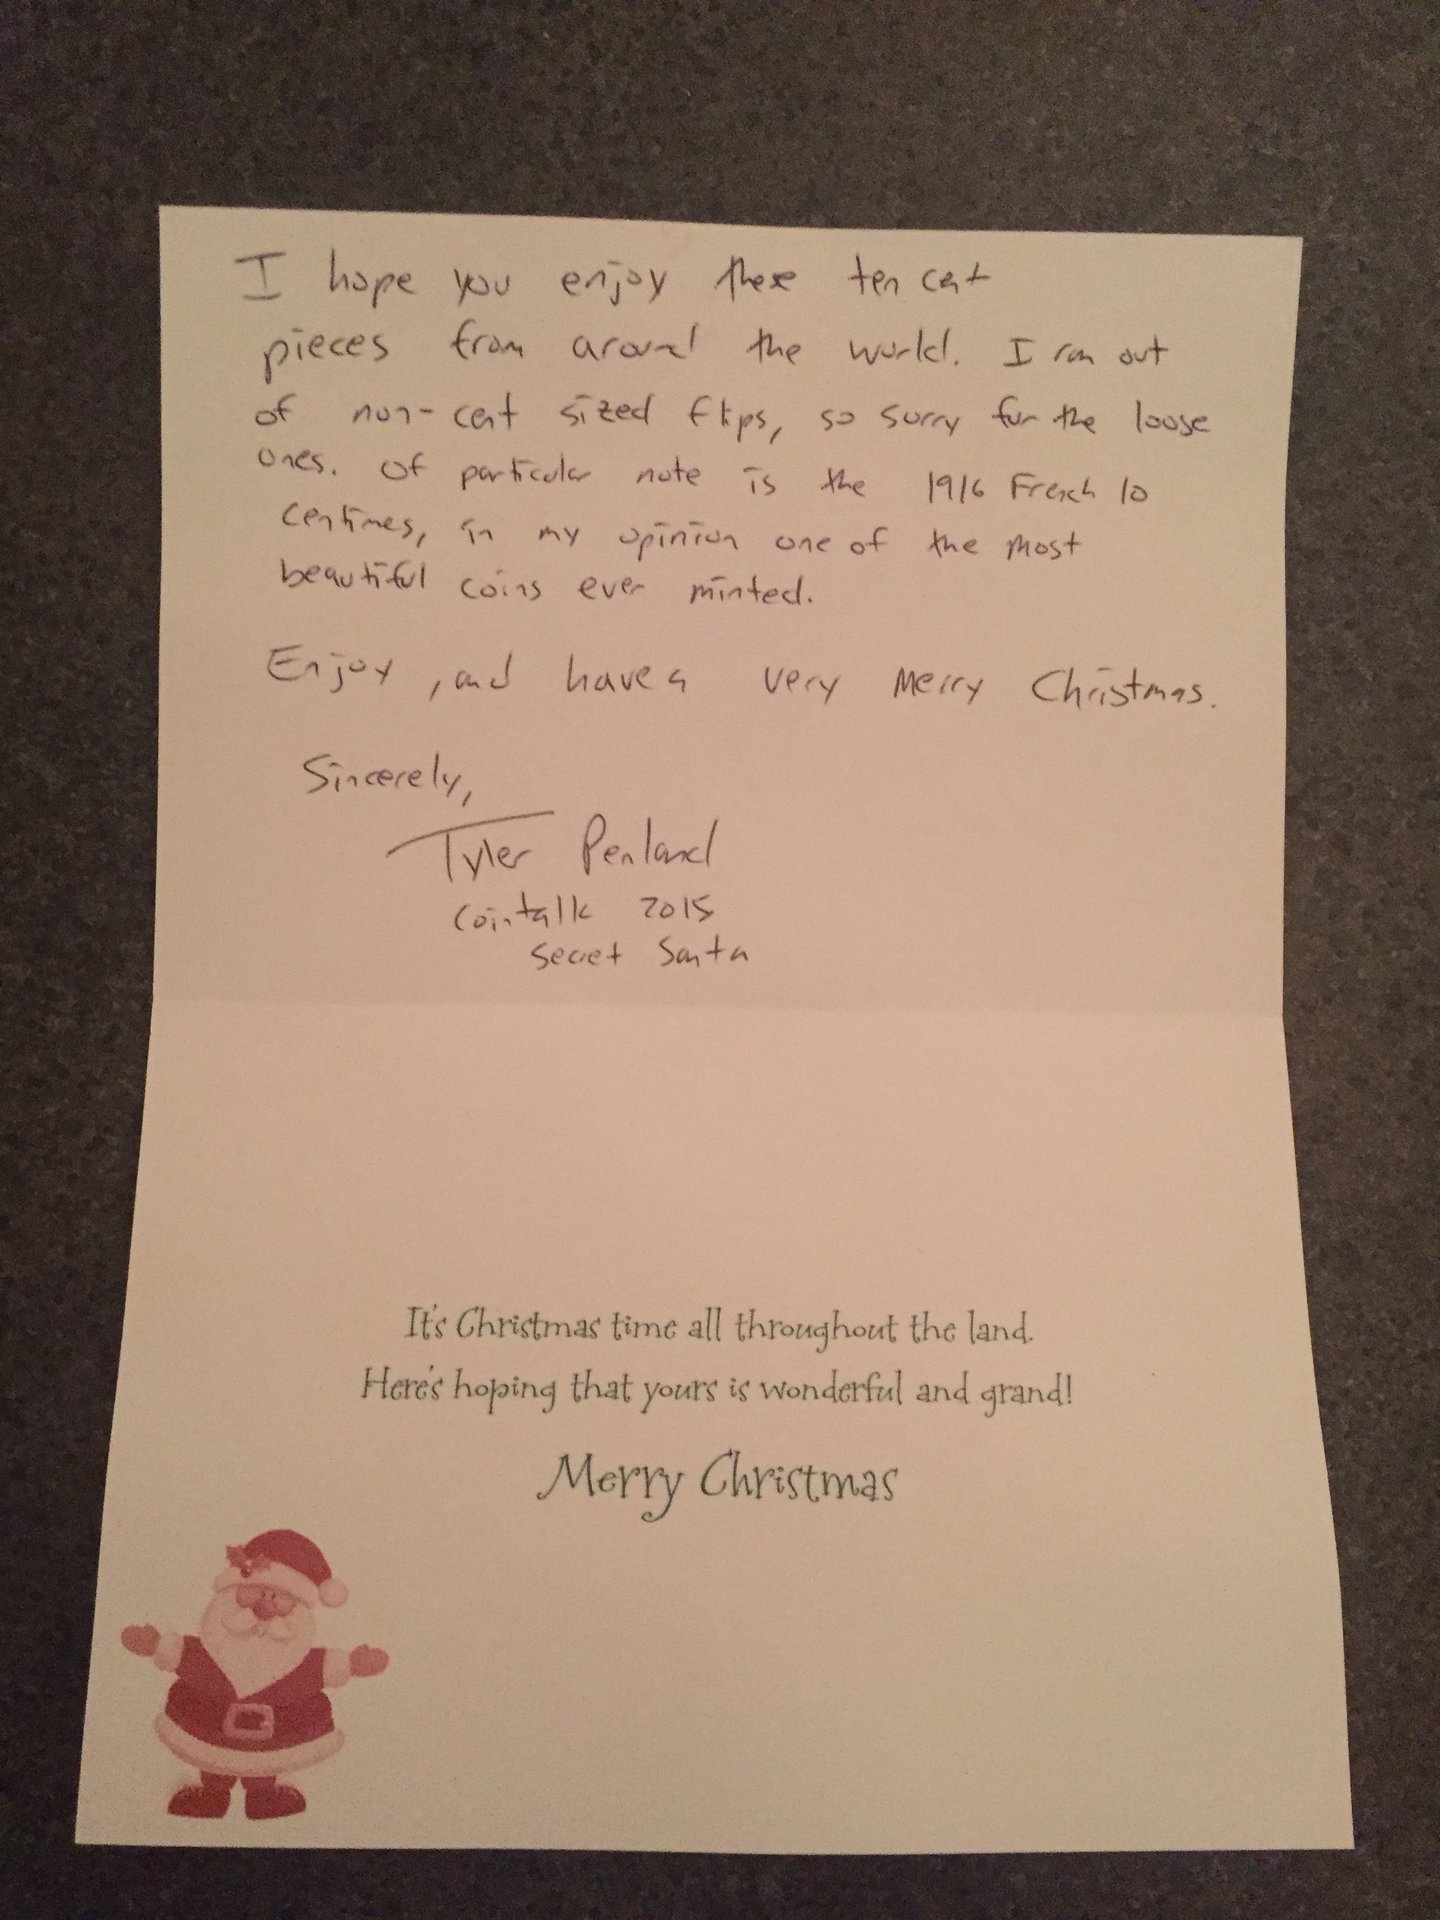 I hope you enjoy these ten cent
pieces from around the world. I ran out
of non-cent sized flips, so sorry for the loose
ones. Of particular note is the 1916 French 10
centimes, in my opinion one of the most
beautiful coins ever minted.
Enjoy, and have a very Merry Christmas.
Sincerely,
Tyler Penland
Cointalk 2015
Secret Santa
It's Christmas time all throughout the land.
Here's hoping that yours is wonderful and grand!
Merry Christmas